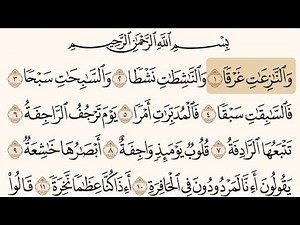 بِسْمِ ٱللَّهِ ٱلرَّحْمَٰنِ ٱلرَّحِيمِ
وَٱلنَّٰزِعَٰتِ غَرْقًا ١ وَٱلنَّٰشِطَٰتِ نَشْطًا ٢ وَٱلسَّٰبِحَٰتِ سَبْحًا ٣
فَٱلسَّٰبِقَٰتِ سَبْقًا ٤ فَٱلْمُدَبِّرَٰتِ أَمْرًا ٥ يَوْمَ تَرْجُفُ ٱلرَّاجِفَةُ ٦
تَتْبَعُهَا ٱلرَّادِفَةُ ٧ قُلُوبٌ يَوْمَئِذٍ وَاجِفَةٌ ٨ أَبْصَٰرُهَا خَٰشِعَةٌ ٩
يَقُولُونَ أَءِنَّا لَمَرْدُودُونَ فِى ٱلْحَافِرَةِ ١٠ أَءِذَا كُنَّا عِظَٰمًا نَّخِرَةً ١١ قَالُوا۟